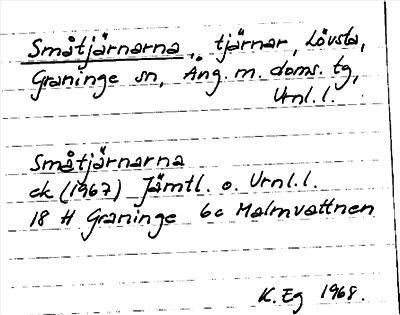 Småtjärnarna, tjärnar, Lövsta,
Graninge sn, Ång. m. doms. tg,
Vrnl.l.
Småtjärnarna
ek (1967) Jämtl. o. Vrnl.l.
18 H Graninge 6c Malmvattnen
K. Eg 1968.